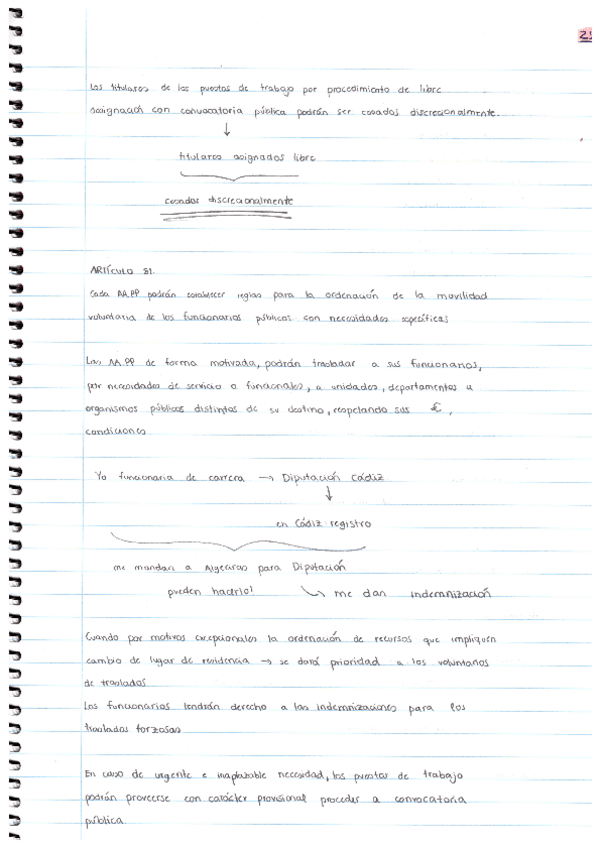 Los titulares de los puestos de trabajo por procedimiento de libre
asignación con convocatoria pública podrán ser cesados discrecionalmente.
↓
titulares asignados libre
cesados discrecionalmente
ARTÍCULO 81.
Cada AA.PP podrán establecer reglas para la ordenación de la movilidad
voluntaria de los funcionarios públicos con necesidades específicas
Las AA.PP de forma motivada, podrán trasladar a sus funcionarios,
por necesidades de servicio o funcionales, a unidades, departamentos u
organismos públicos distintos de su destino, respetando sus €,
condiciones
Yo funcionaria de carrera → Diputación Cádiz
↓
en Cádiz registro
me mandan a Algeciras para Diputación
pueden hacerlo! ↳ me dan indemnización
Cuando por motivos excepcionales la ordenación de recursos que impliquen
cambio de lugar de residencia → se dará prioridad a los voluntarios
de traslados
Los funcionarios tendrán derecho a las indemnizaciones para los
traslados forzosos
En caso de urgente e inaplazable necesidad, los puestos de trabajo
podrán proveerse con carácter provisional proceder a convocatoria
pública